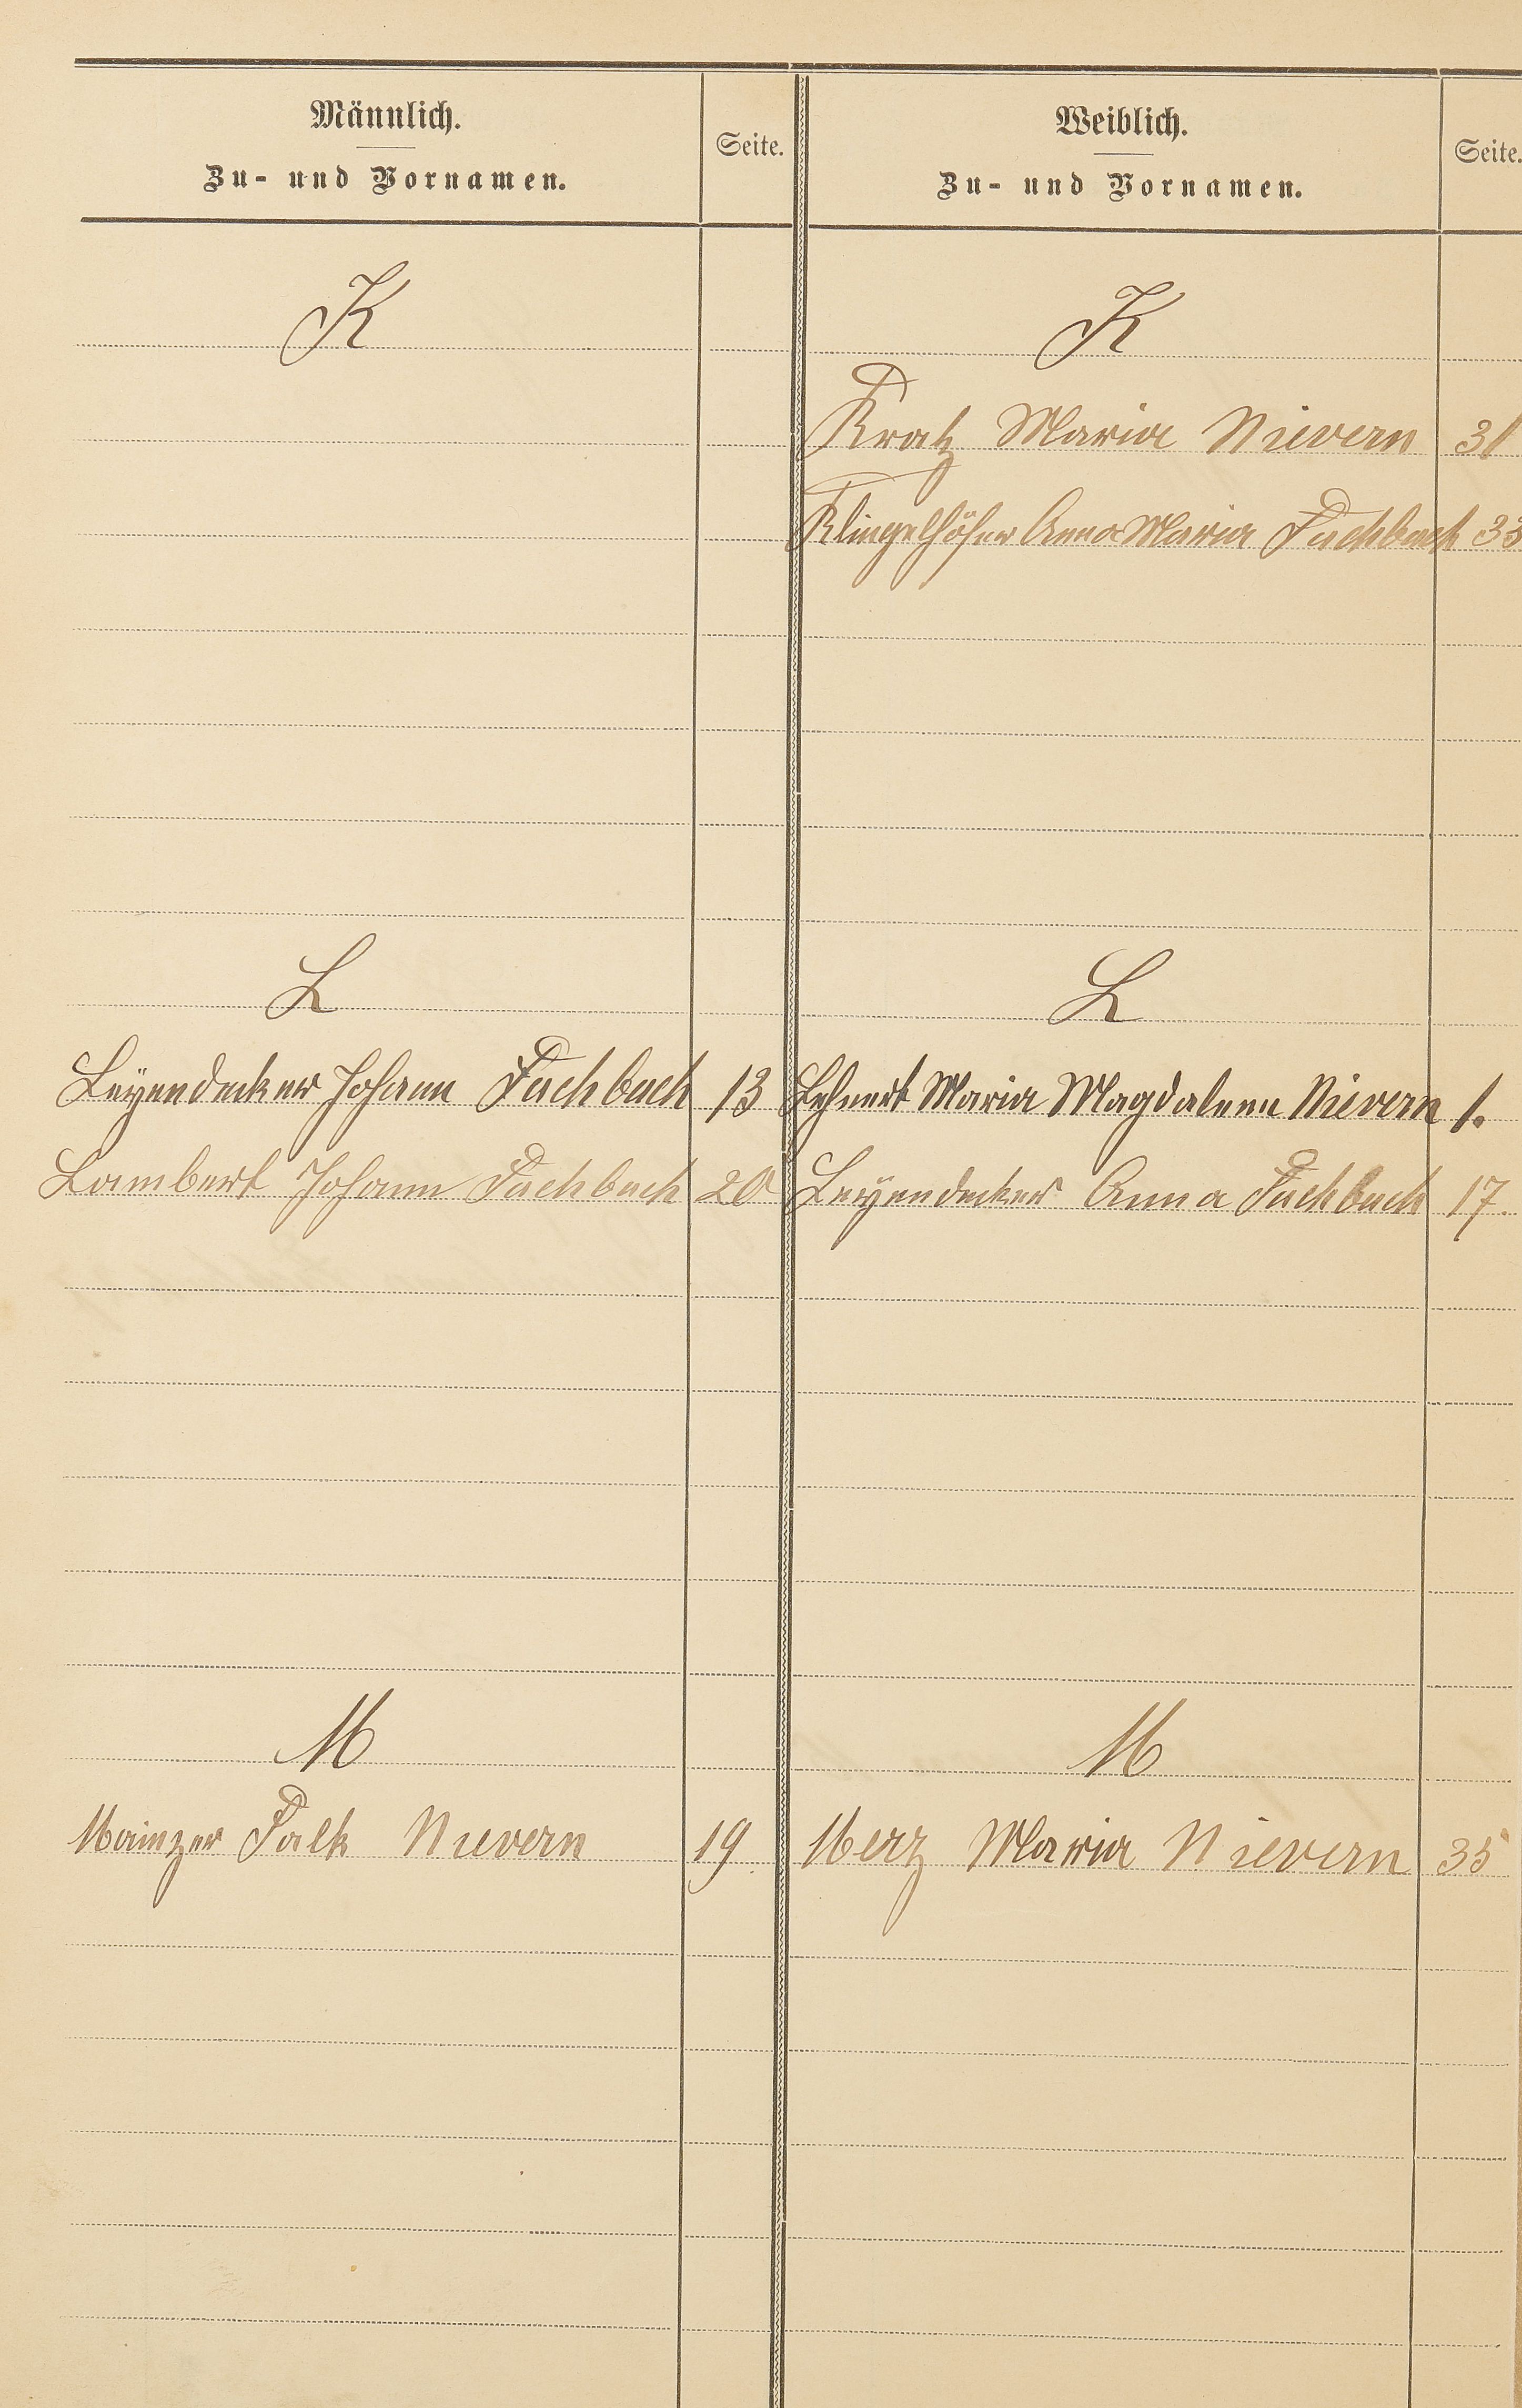 Männlich.
Zu- und Vornamen.
Seite.
Weiblich.
Zu- und Vornamen.
Seite.
K
K
Kratz Maria Nievern 31
Klingelhöfer Anna Maria Fachbach 33
L
L
Leyendecker Johann Fachbach 13
Lehnert Maria Magdalena Nievern 1.
Lambert Johann Fachbach 20
Leyendecker Anna Fachbach 17.
M
M
Mainzer Falk Nievern 19
Merz Maria Nievern 35